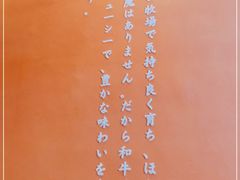 牧場で気持ち良く育ち、ほ
はありません。だから和牛
ューシーで、豊かな味わいを
す。